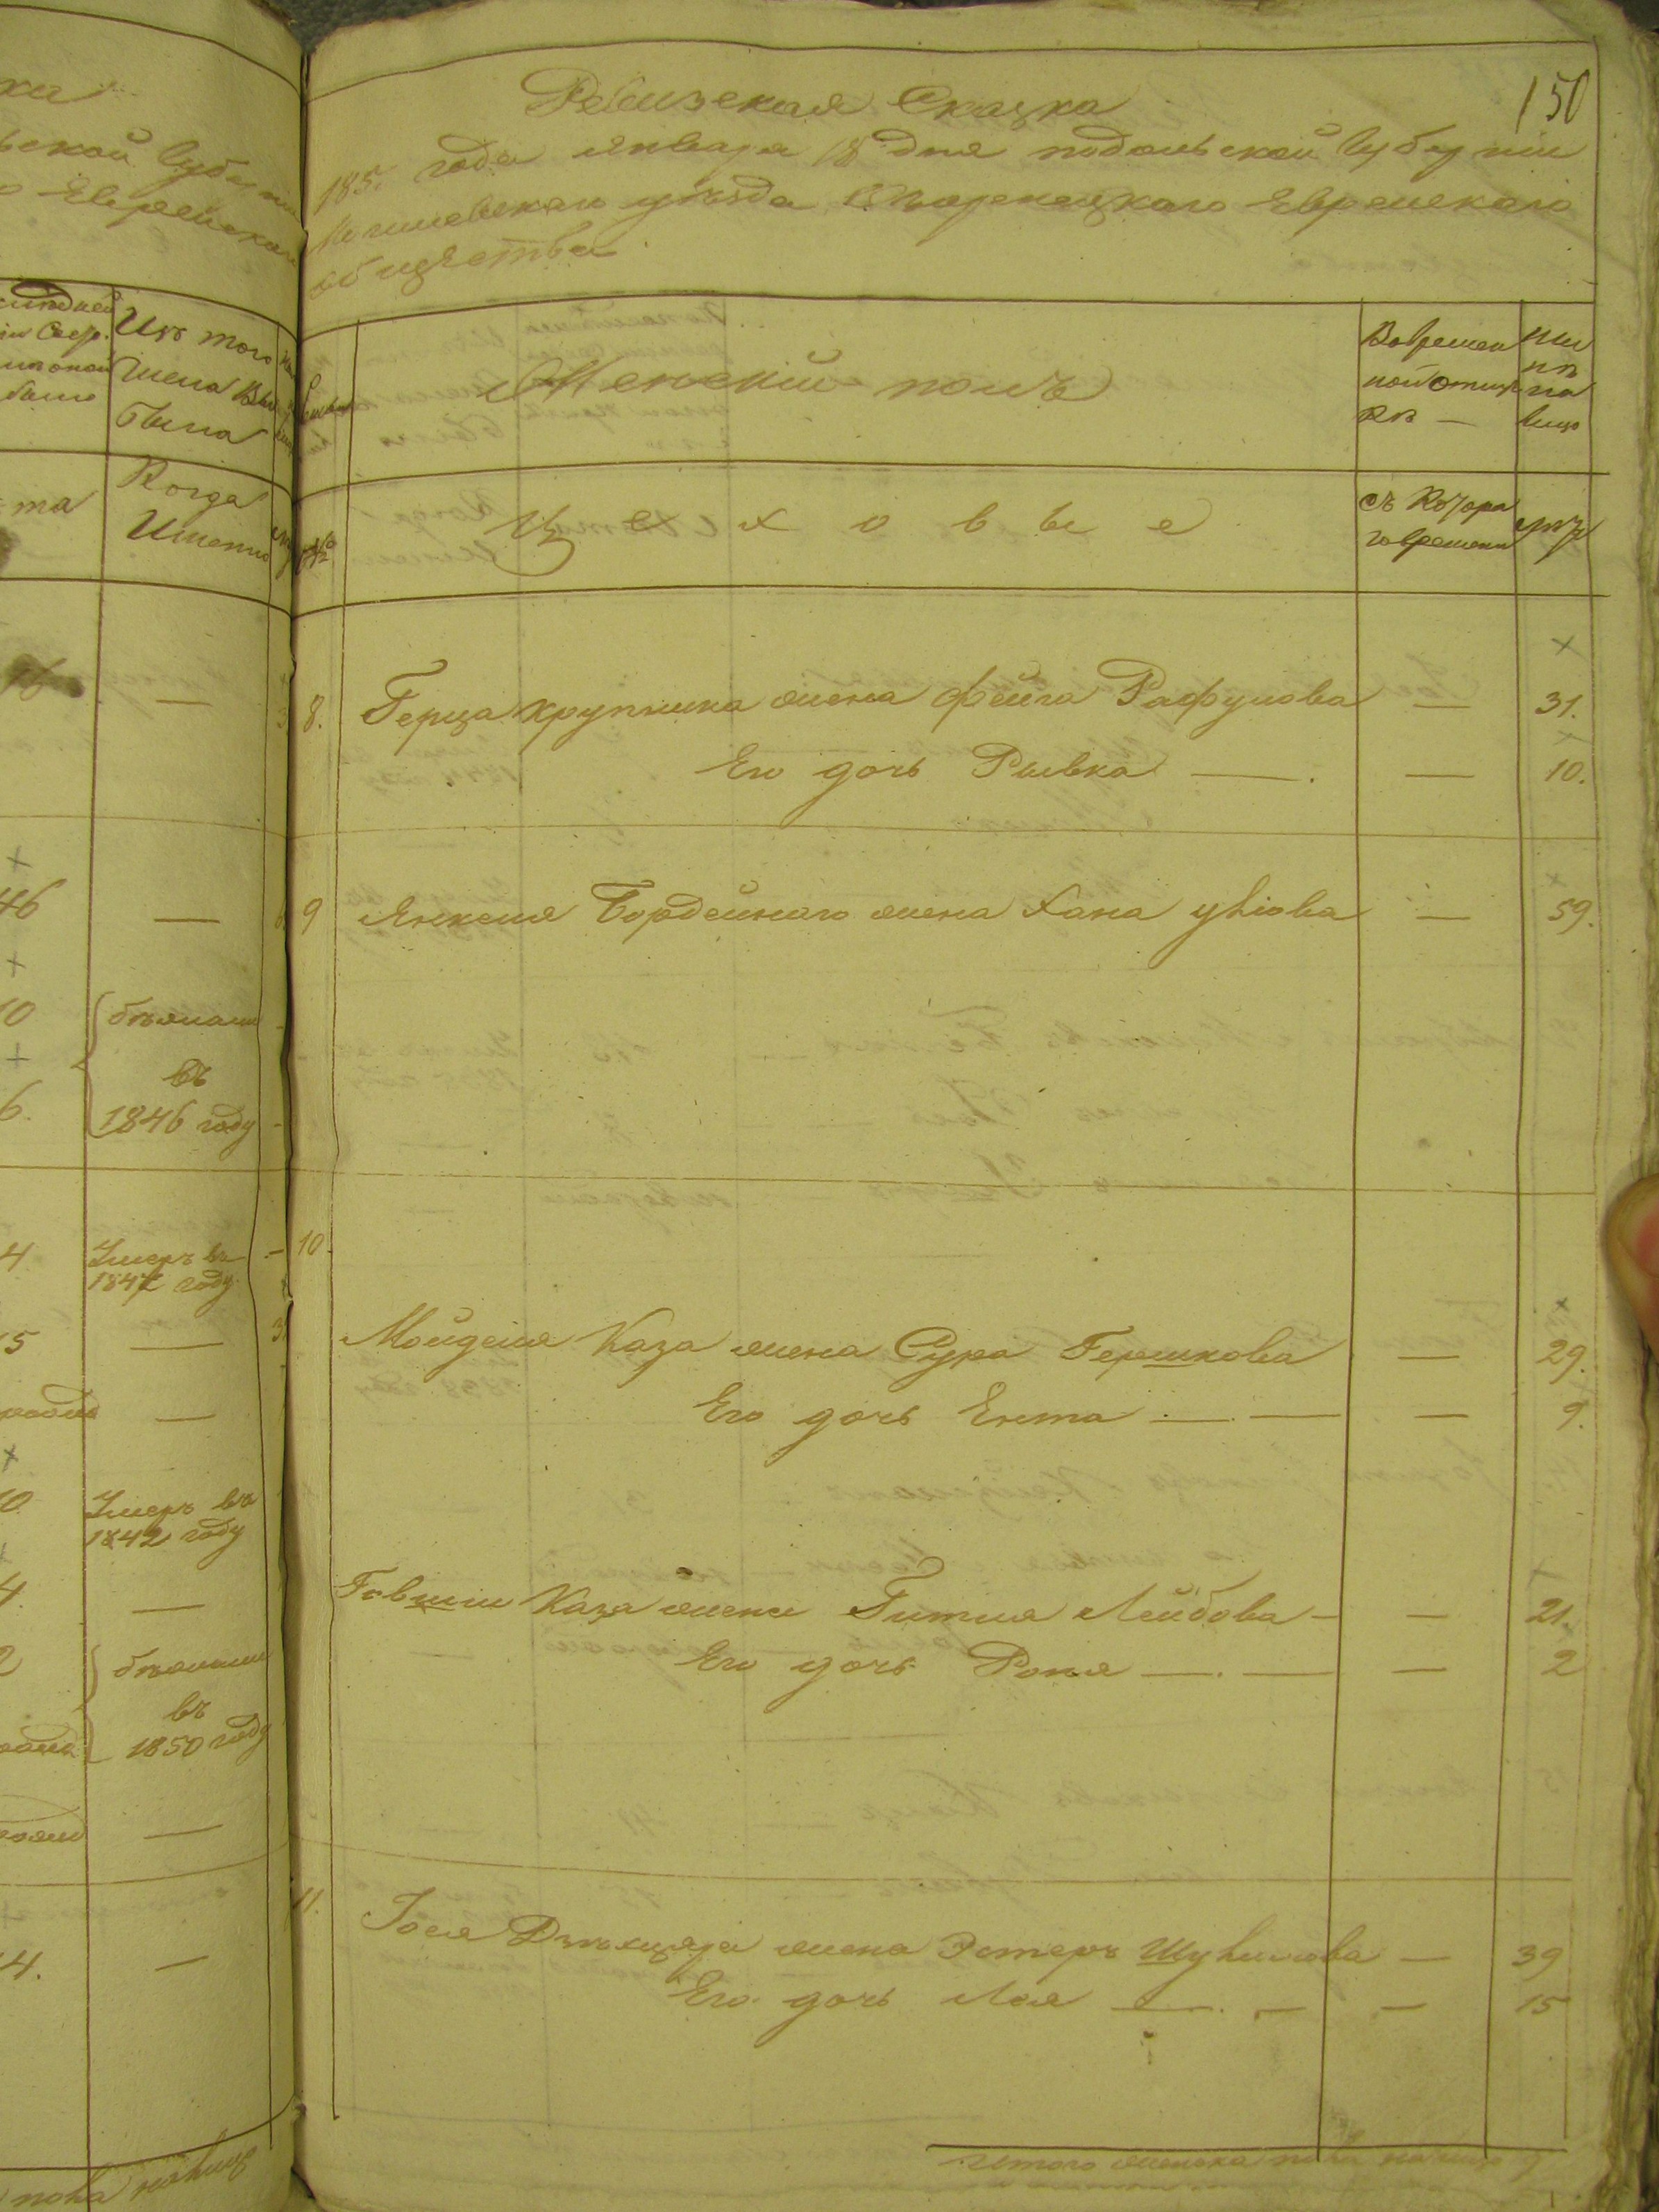 ской Губерніи
Еврейскаго
Изъ того
числа Вы
была
Когда
Именно
та
—
46
—
10
бѣжали
6.
въ
1846 году
4
Умеръ въ
184 году
5
—
—
Умеръ въ
1842 году
4.
—
2
бѣжали
въ
1850 году
—
4.
—
150
Ревизская Сказка
185 года Января 18 дня подольской Губерніи
Могилевскаго уѣзда Еврейскаго
общества
Женскій полъ
Во времен
ной отлуч
кѣ —
Ны
нѣ
на
лицо
Ц е х о в ы е
съ Котора
го времени
лѣта
8. Герца Крупника жена Фейга Рафулова — 31.
Его дочь Рывка — . — 10.
9 Янкеля Бордейного жена Хана — 59.
10.
Мойделя Каза жена Сура Гершкова — 29.
Его дочь Ента — . — — 9.
Говшии Каза жена Гитля Лейбова — — 21.
Его дочь Роня — . — — 2
11.
Іося жена Эстеръ — 39
Его дочь Лея — . — — 15
Итого женска пола на лицо 9